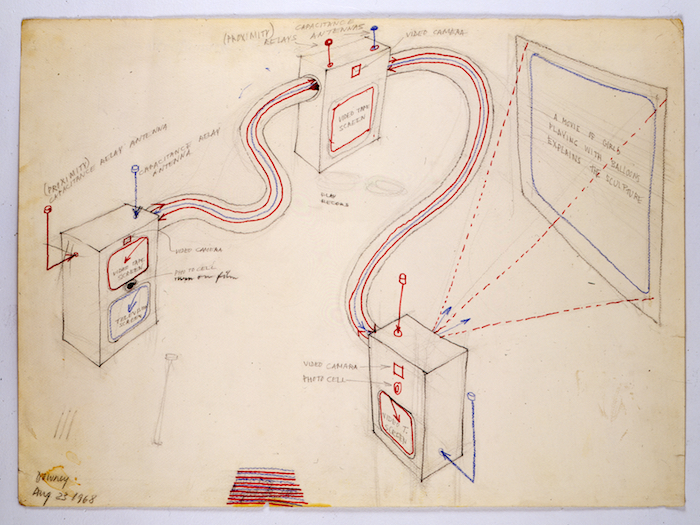 CAPACITANCE
(PROXIMITY) RELAYS ANTENNAS
VIDEO CAMERA
VIDEO TAPE
SCREEN
A MOVIE OF
PLAYING WITH BALLOONS
EXPLAINS THE SCULPTURE
(PROXIMITY)
CAPACITANCE RELAY ANTENNA
CAPACITANCE RELAY
ANTENNA
PLAY
RECORD
VIDEO CAMERA
VIDEO TAPE
SCREEN
PHOTO CELL
turn on film
SCREEN
VIDEO CAMARA
PHOTO CELL
VIDEO T.
SCREEN
Downey
Aug 23 1968